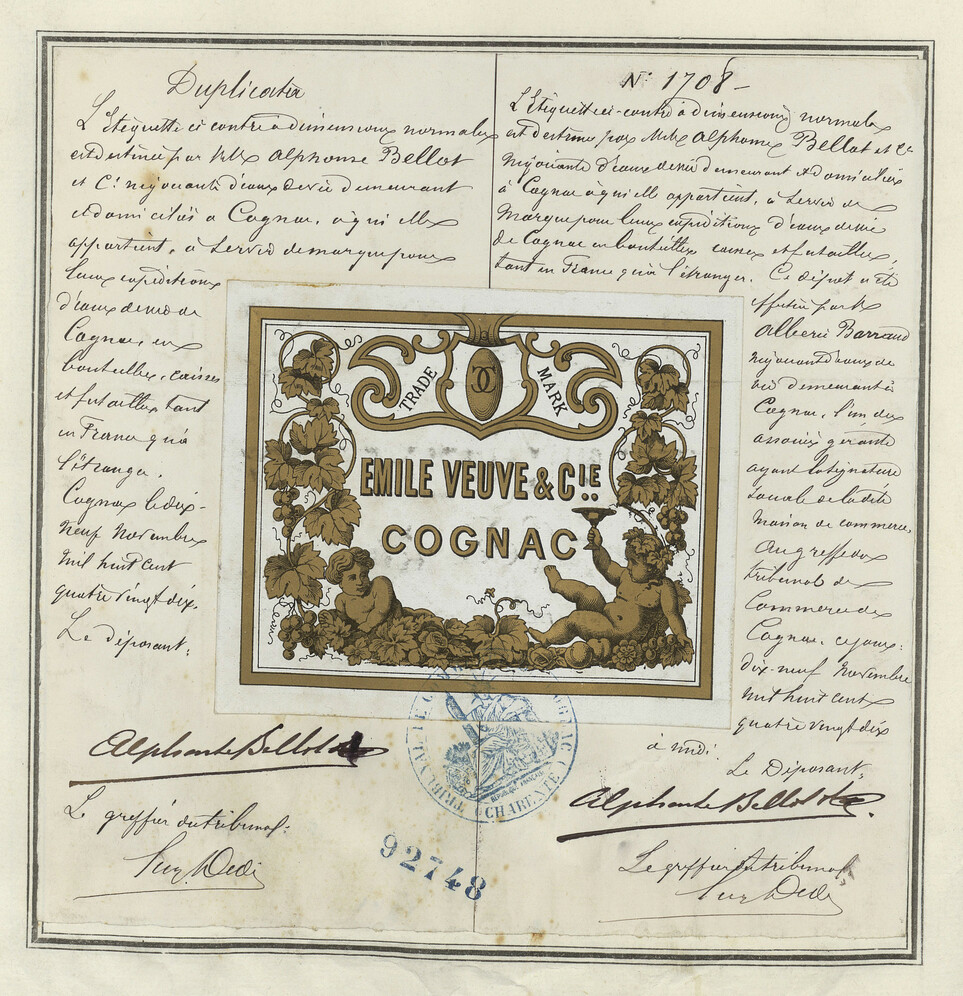 Duplicata
L'Etiquette ci contre à dimensions normales
est destinée par MM. Alphonse Bellot
et Cie négociants d'eaux de vie demeurant
et domiciliés à Cognac, à qui elle
appartient, à servir de marque pour
leurs expéditions
d'eaux de vie de
Cognac, en
bouteilles, caisses
et futailles tant
en France qu'à
l'étranger.
Cognac le dix-
neuf Novembre
mil huit cent
quatre vingt dix.
Le déposant:
Alphonse Bellot & Cie
Le greffier du tribunal:
N° 1708 -
L'Etiquette ci-contre à dimensions normales
est destinée par MM. Alphonse Bellot et Cie
négociants d'eaux de vie demeurant et domiciliés
à Cognac à qui elle appartient, à servir de
marque pour leurs expéditions d'eaux de vie
de Cognac en bouteilles, caisses et futailles,
tant en France qu'à l'étranger. Ce dépôt a été
effectué par M.
Albéric Barraud
négociant d'eaux de
vie demeurant à
Cognac, l'un des
associés gérants
ayant la signature
sociale de la dite
maison de commerce,
au greffe du
tribunal de
Commerce de
Cognac, ce jour:
dix-neuf Novembre
mil huit cent
quatre vingt dix
à midi.
Le Déposant:
Alphonse Bellot & Cie
Le greffier du tribunal
TRADE MARK
EMILE VEUVE & CIE
COGNAC
TRIBUNAL DE COGNAC
REPUBLIQUE FRANÇAISE
(CHARENTE)
92748